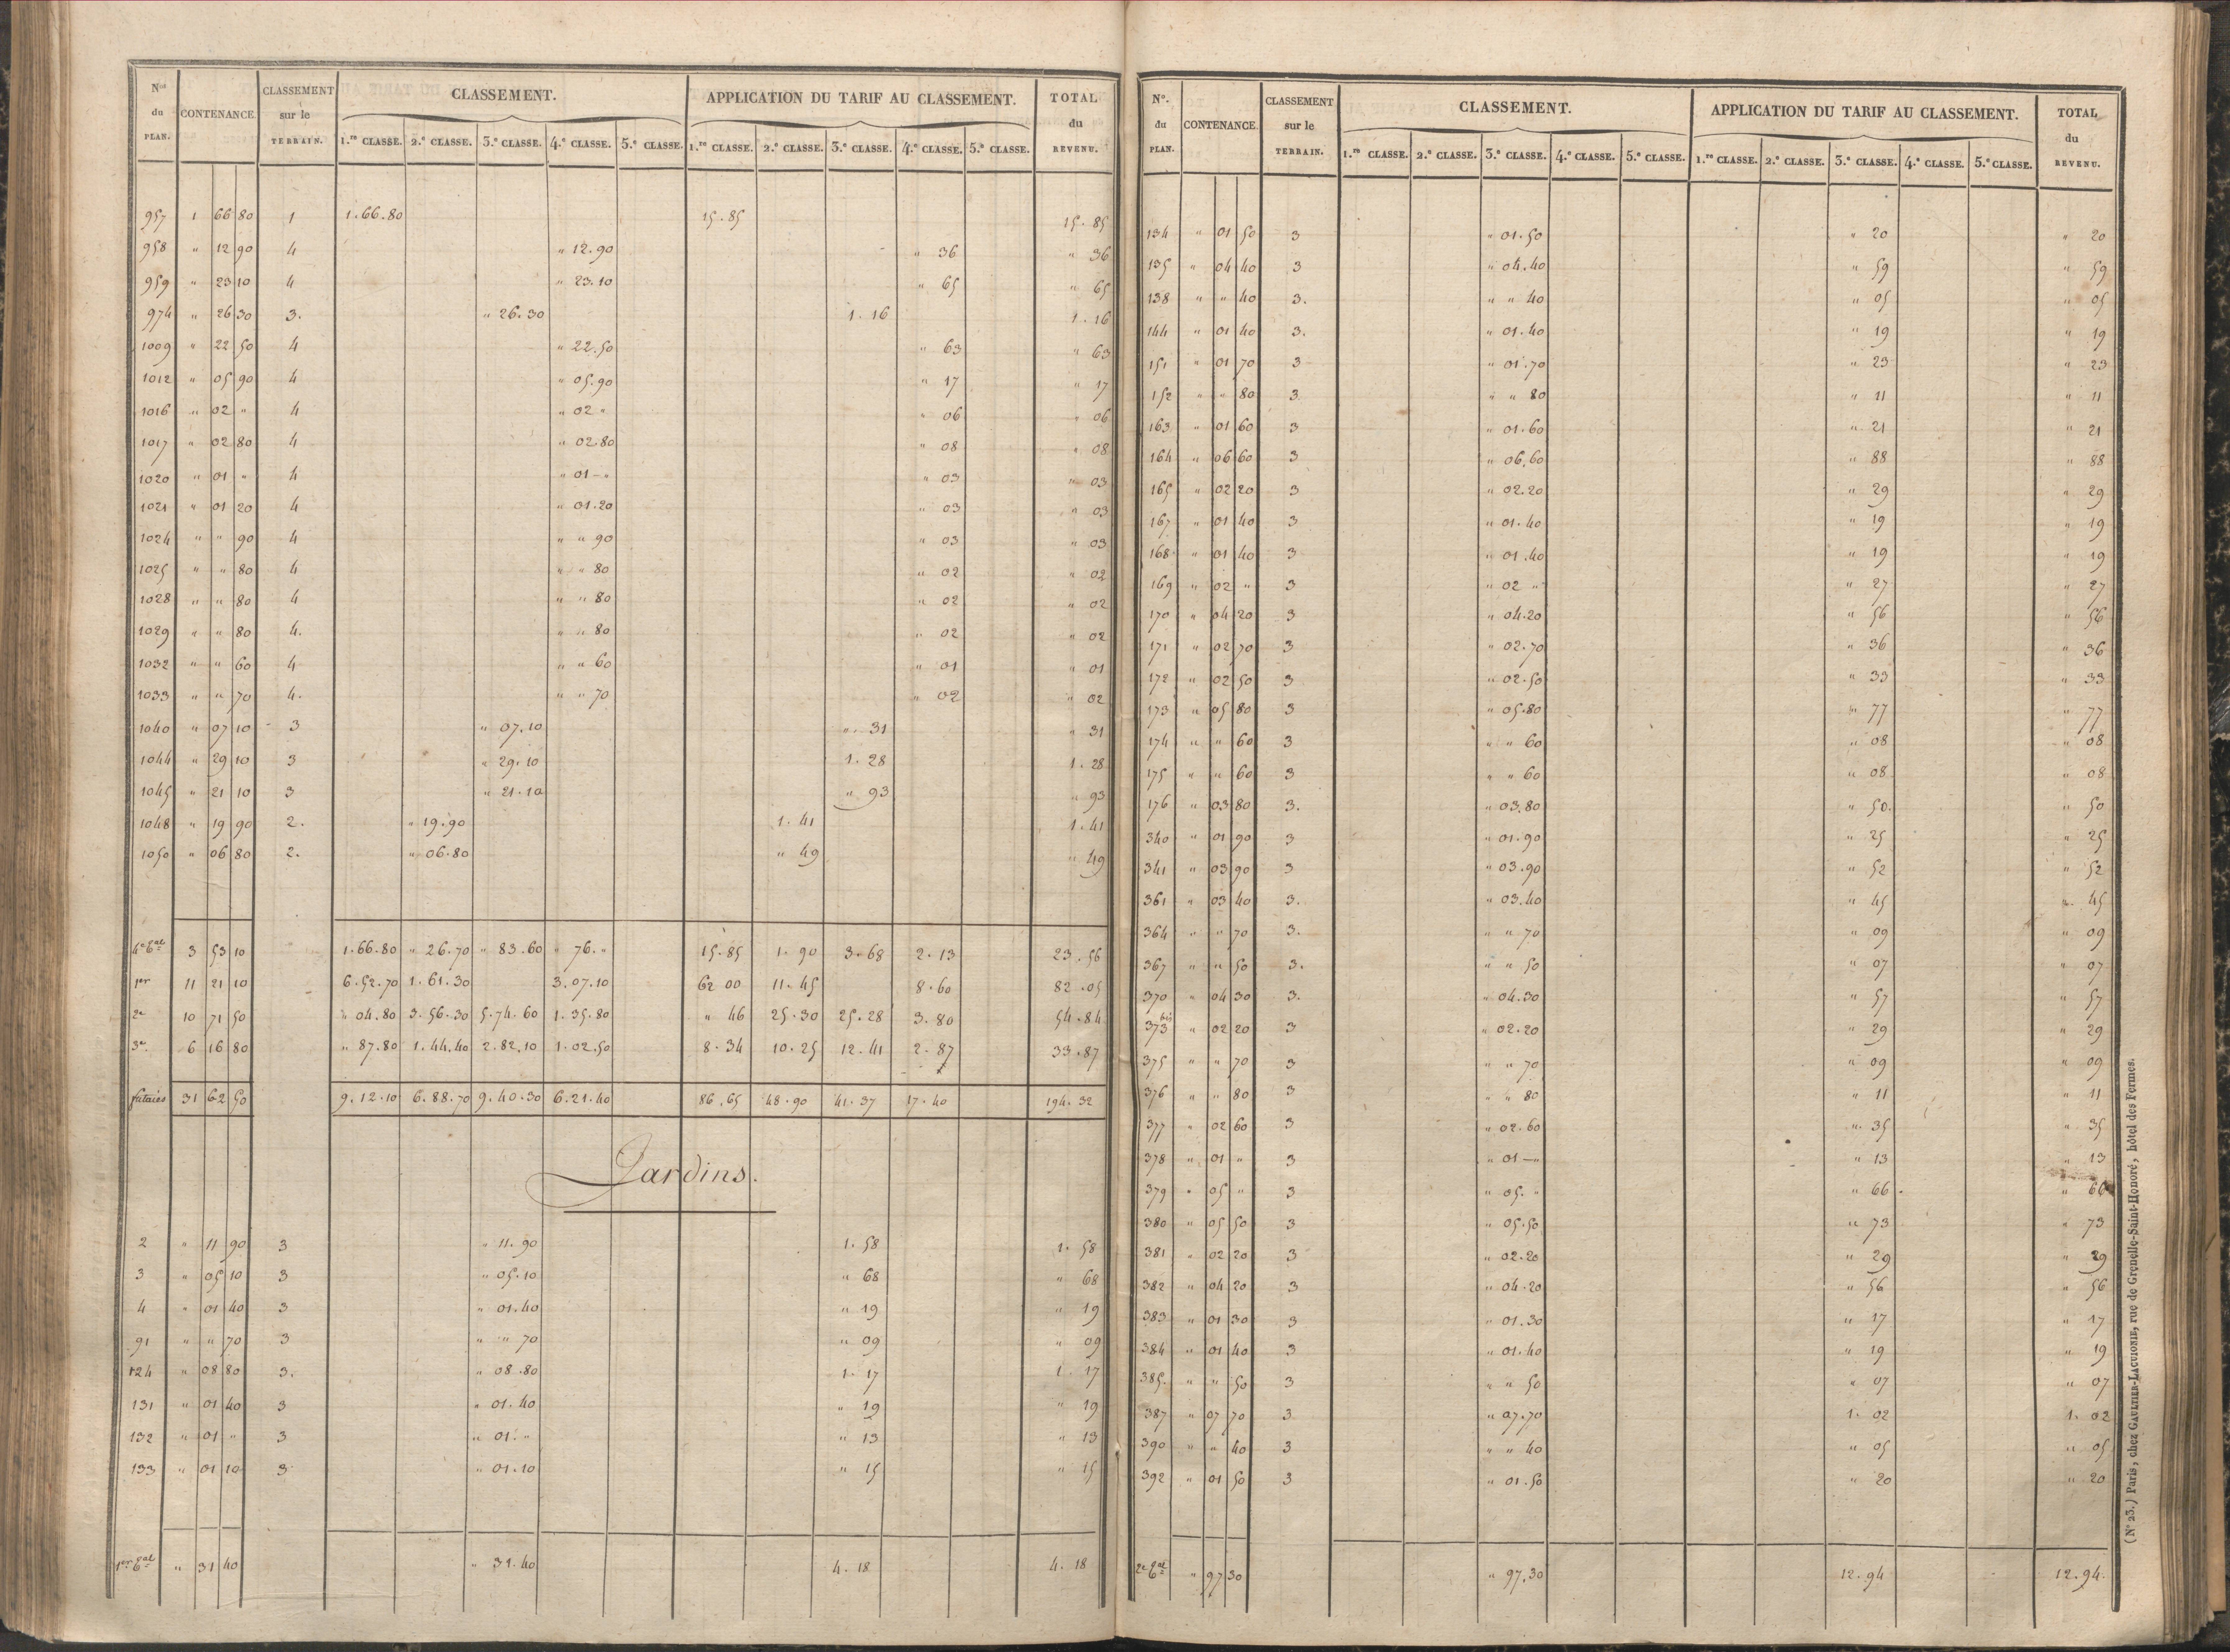 Nos du PLAN. CONTENANCE. CLASSEMENT sur le TERRAIN. CLASSEMENT. APPLICATION DU TARIF AU CLASSEMENT. TOTAL du REVENU.
1.re CLASSE. 2.e CLASSE. 3.e CLASSE. 4.e CLASSE. 5.e CLASSE. 1.re CLASSE. 2.e CLASSE. 3.e CLASSE. 4.e CLASSE. 5.e CLASSE.
957 1 66 80 1 1.66.80 15.85 15.85
958 " 12 90 4 " 12.90 " 36 " 36
959 " 23 10 4 " 23.10 " 65 " 65
974 " 26 30 3. " 26.30 1.16 1.16
1009 " 22 50 4 " 22.50 " 63 " 63
1012 " 05 90 4 " 05.90 " 17 " 17
1016 " 02 " 4 " 02 " " 06 " 06
1017 " 02 80 4 " 02.80 " 08 " 08
1020 " 01 " 4 " 01 - " " 03 " 03
1021 " 01 20 4 " 01.20 " 03 " 03
1024 " " 90 4 " " 90 " 03 " 03
1025 " " 80 4 " " 80 " 02 " 02
1028 " " 80 4 " " 80 " 02 " 02
1029 " " 80 4. " " 80 " 02 " 02
1032 " " 60 4 " " 60 " 01 " 01
1033 " " 70 4. " " 70 " 02 " 02
1040 " 07 10 3 " 07.10 " 31 " 31
1044 " 29 10 3 " 29.10 1.28 1.28
1045 " 21 10 3 " 21.10 " 93 " 93
1048 " 19 90 2. " 19.90 1.41 1.41
1050 " 06 80 2. " 06.80 " 49 " 49
4e tal 3 53 10 1.66.80 " 26.70 " 83.60 " 76. " 15.85 1.90 3.68 2.13 23.56
1er 11 21 10 6.52.70 1.61.30 3.07.10 62 00 11.45 8.60 82.05
2e 10 71 50 " 04.80 3.56.30 5.74.60 1.35.80 " 46 25.30 25.28 3.80 54.84
3e 6 16 80 " 87.80 1.44.40 2.82.10 1.02.50 8.34 10.25 12.41 2.87 33.87
futaies 31 62 50 9.12.10 6.88.70 9.40.30 6.21.40 86.65 48.90 41.37 17.40 194.32
Jardins.
2 " 11 90 3 " 11.90 1.58 1.58
3 " 05 10 3 " 05.10 " 68 " 68
4 " 01 40 3 " 01.40 " 19 " 19
91 " " 70 3 " " 70 " 09 " 09
124 " 08 80 3. " 08.80 1.17 1.17
131 " 01 40 3 " 01.40 " 19 " 19
132 " 01 " 3 " 01. " " 13 " 13
133 " 01 10 3 " 01.10 " 15 " 15
1er tal " 31 40 " 31.40 4.18 4.18
Nos. du PLAN. CONTENANCE. CLASSEMENT sur le TERRAIN. CLASSEMENT. APPLICATION DU TARIF AU CLASSEMENT. TOTAL du REVENU.
1.re CLASSE. 2.e CLASSE. 3.e CLASSE. 4.e CLASSE. 5.e CLASSE. 1.re CLASSE. 2.e CLASSE. 3.e CLASSE. 4.e CLASSE. 5.e CLASSE.
134 " 01 50 3 " 01.50 " 20 " 20
135 " 04 40 3 " 04.40 " 59 " 59
138 " " 40 3. " " 40 " 05 " 05
144 " 01 40 3. " 01.40 " 19 " 19
151 " 01 70 3 " 01.70 " 23 " 23
152 " " 80 3 " " 80 " 11 " 11
163 " 01 60 3 " 01.60 " 21 " 21
164 " 06 60 3 " 06.60 " 88 " 88
165 " 02 20 3 " 02.20 " 29 " 29
167 " 01 40 3 " 01.40 " 19 " 19
168 " 01 40 3 " 01.40 " 19 " 19
169 " 02 " 3 " 02 " " 27 " 27
170 " 04 20 3 " 04.20 " 56 " 56
171 " 02 70 3 " 02.70 " 36 " 36
172 " 02 50 3 " 02.50 " 33 " 33
173 " 05 80 3 " 05.80 " 77 " 77
174 " " 60 3 " " 60 " 08 " 08
175 " " 60 3 " " 60 " 08 " 08
176 " 03 80 3. " 03.80 " 50. " 50
340 " 01 90 3 " 01.90 " 25 " 25
341 " 03 90 3 " 03.90 " 52 " 52
361 " 03 40 3. " 03.40 " 45 " 45
364 " " 70 3. " " 70 " 09 " 09
367 " " 50 3. " " 50 " 07 " 07
370 " 04 30 3. " 04.30 " 57 " 57
373 bis " 02 20 3 " 02.20 " 29 " 29
375 " " 70 3 " " 70 " 09 " 09
376 " " 80 3 " " 80 " 11 " 11
377 " 02 60 3 " 02.60 " 35 " 35
378 " 01 " 3 " 01 - " " 13 " 13
379 " 05 " 3 " 05. " " 66 " 66
380 " 05 50 3 " 05.50 " 73 " 73
381 " 02 20 3 " 02.20 " 29 " 29
382 " 04 20 3 " 04.20 " 56 " 56
383 " 01 30 3 " 01.30 " 17 " 17
384 " 01 40 3 " 01.40 " 19 " 19
385. " " 50 3 " " 50 " 07 " 07
387 " 07 70 3 " 07.70 1.02 1.02
390 " " 40 3 " " 40 " 05 " 05
392 " 01 50 3 " 01.50 " 20 " 20
2e tal " 97 30 " 97.30 12.94 12.94.
(N° 23.) Paris, chez GAULTIER-LAGUIONIE, rue de Grenelle-Saint-Honoré, hôtel des Fermes.